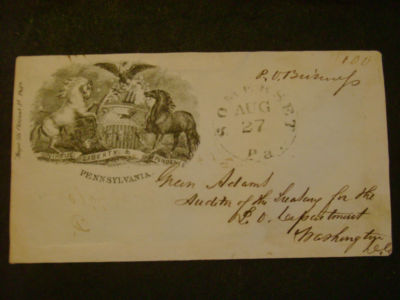 P.O. Business
100
SOMERSET
AUG
27
Pa
VIRTUE LIBERTY & INDEPENDENCE
PENNSYLVANIA.
Green Adams
Auditor of the Treasury for the
P. O. Department
Washington
D.C.